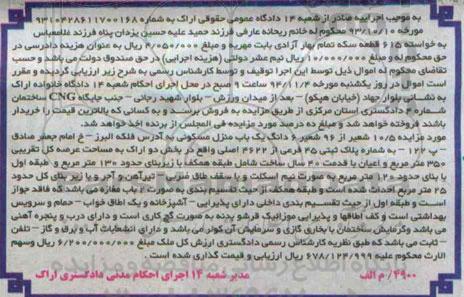 به موجب اجراییه صادر از شعبه ۱۴ دادگاه عمومی حقوقی اراک به شماره ۹۳۱۰۴۲۸۶۱۱۷۰۰۱۶۸
مورخه ۹۳/۱۰/۱۰ محکوم له خانم ریحانه عارفی فرزند حمید علیه حسین یزدان پناه فرزند غلامعباس
به خواسته ۶۱۵ قطعه سکه تمام بهار آزادی بابت مهریه و مبلغ ۴/۰۵۰/۰۰۰ ریال به عنوان هزینه دادرسی در
حق محکوم له و مبلغ ۱۰/۰۰۰/۰۰۰ ریال نیم عشر دولتی (هزینه اجرایی) در حق صندوق دولت می باشد و حسب
تقاضای محکوم له اموال ذیل توسط این اجرا توقیف و توسط کارشناس رسمی به شرح زیر ارزیابی گردیده و مقرر
است اموال در روز یکشنبه مورخه ۹۴/۱۱/۴ ساعت ۹ صبح در محل اجرای احکام شعبه ۱۴ دادگاه خانواده اراک
به نشانی بلوار جهاد (خیابان هپکو) – بعد از میدان ورزش – بلوار شهید رجائی – جنب جایگاه CNG ساختمان
شماره ۴ دادگستری استان مرکزی از طریق مزایده به فروش برسد و به کسانی که بالاترین قیمت را خریدار
باشند فروخته خواهد شد و فی المجلس از برنده اخذ خواهد شد.
مورد مزایده ۱۰/۵ شعیر از ۹۶ شعیر ۶ دانگ یک باب منزل مسکونی به آدرس فلکه البرز – خ امام جعفر صادق
پ ۱۲۲ – به شماره پلاک ثبتی ۲۵ فرعی از ۴۶۲۲ اصلی واقع در بخش دو اراک به مساحت عرصه کل تقریبی
۳۵۰ متر مربع و اعیان با قدمت ۴۰ سال ساخت شامل طبقه همکف با زیربنای حدود ۱۳۰ متر مربع و طبقه اول
با بنای حدود ۱۲۰ متر مربع به صورت نیم اسکلت و با سقف طاق ضربی – تیرآهن و آجر و با زیر بنای کل حدود
۲۵۰ متر مربع احداث شده است و طبقه همکف از حیث تقسیم بندی به صورت ۲ باب مغازه می باشد که فاقد جواز
است و طبقه اول از حیث تقسیم بندی داخلی دارای پذیرایی – آشپزخانه و یک اطاق خواب – حمام و سرویس
بهداشتی است و کف اطاقها و پذیرایی موزائیک فرشو بدنه به صورت گچ کاری است و دارای درب و پنجره آهنی
می باشد وگرمایش ساختمان با بخاری گازی و سرمایش آن کولر می باشد و دارای انشعابات آب و برق و گاز – تلفن
– ثابت می باشد که طبق نظریه کارشناس رسمی دادگستری ارزش کل ملک مبلغ ۶/۲۰۰/۰۰۰/۰۰۰ ریال وسهم
الارث محکوم علیه ۶۷۸/۱۲۴/۹۹۹ ریال ارزیابی و قیمت گذاری شده است.
۴۹۰۰/م الف مدیر شعبه ۱۴ اجرای احکام مدنی دادگستری اراک